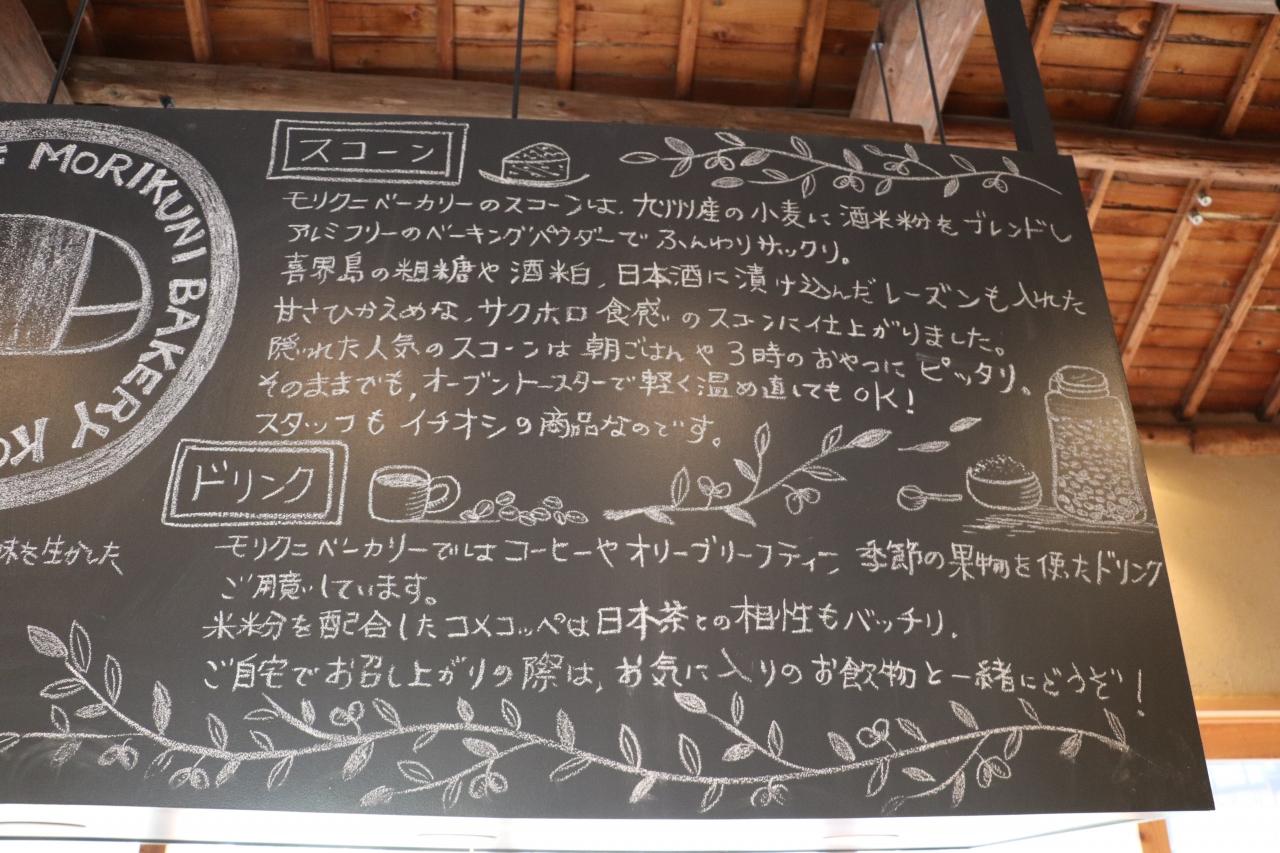 MORIKUNI BAKERY KO
スコーン
モリクニベーカリーのスコーンは、九州産の小麦に酒米粉をブレンドし
アルミフリーのベーキングパウダーでふんわりサックリ。
喜界島の粗糖や酒粕、日本酒に漬け込んだレーズンも入れた
甘さひかえめな、サクホロ食感のスコーンに仕上がりました。
隠れた人気のスコーンは朝ごはんや3時のおやつにピッタリ。
そのままでも、オーブントースターで軽く温め直してもOK!
スタッフもイチオシの商品なのです。
ドリンク
味を生かした
モリクニベーカリーではコーヒーやオリーブリーフティー、季節の果物を使ったドリンク
ご用意しています。
米粉を配合したコメコッペは日本茶との相性もバッチリ。
ご自宅でお召し上がりの際は、お気に入りのお飲物と一緒にどうぞ!